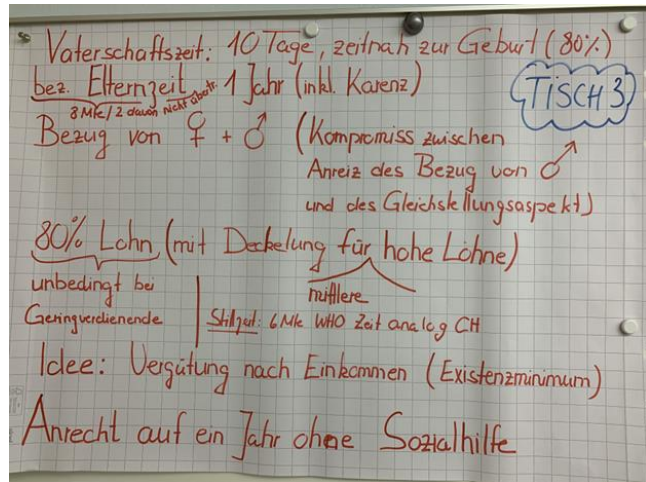 Vaterschaftszeit: 10 Tage, zeitnah zur Geburt (80%)
bez. Elternzeit 1 Jahr (inkl. Karenz)
TISCH 3
8 Mte/2 davon nicht übertr.
Bezug von ♀ + ♂ (Kompromiss zwischen
Anreiz des Bezug von ♂
und des Gleichstellungsaspekt)
80% Lohn (mit Deckelung für hohe Löhne)
unbedingt bei
Geringverdienende
mittlere
Stillzeit: 6 Mte WHO Zeit analog CH
Idee: Vergütung nach Einkommen (Existenzminimum)
Anrecht auf ein Jahr ohne Sozialhilfe